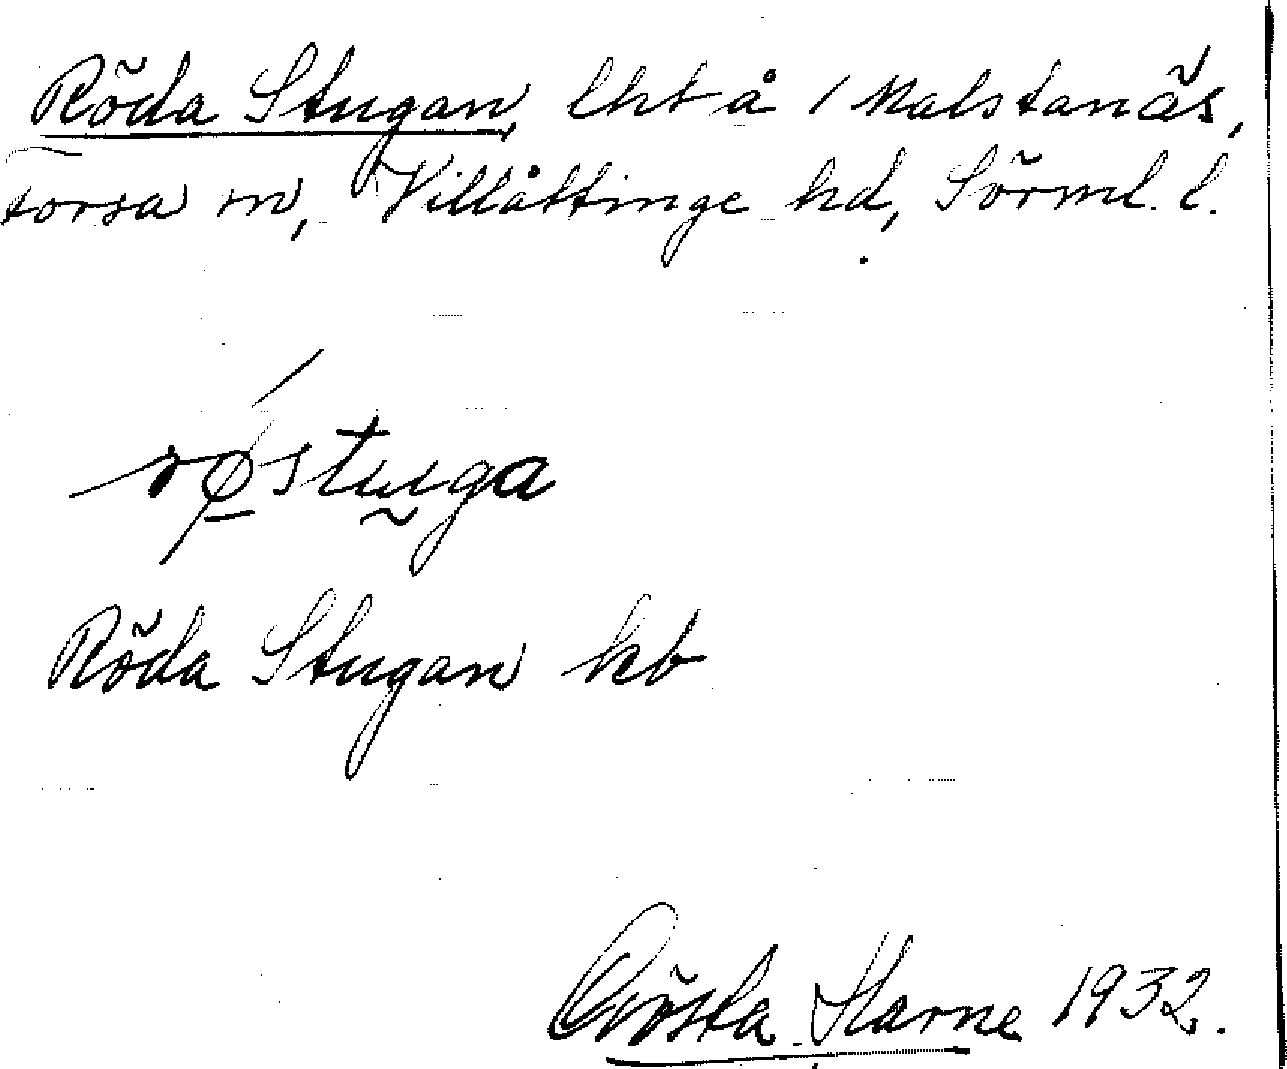 Röda Stugan, lht å 1 Malstanäs,
torsa sn, Villåttinge hd, Sörml. l.
røstuga
Röda Stugan kb
Gösta Harne 1932.